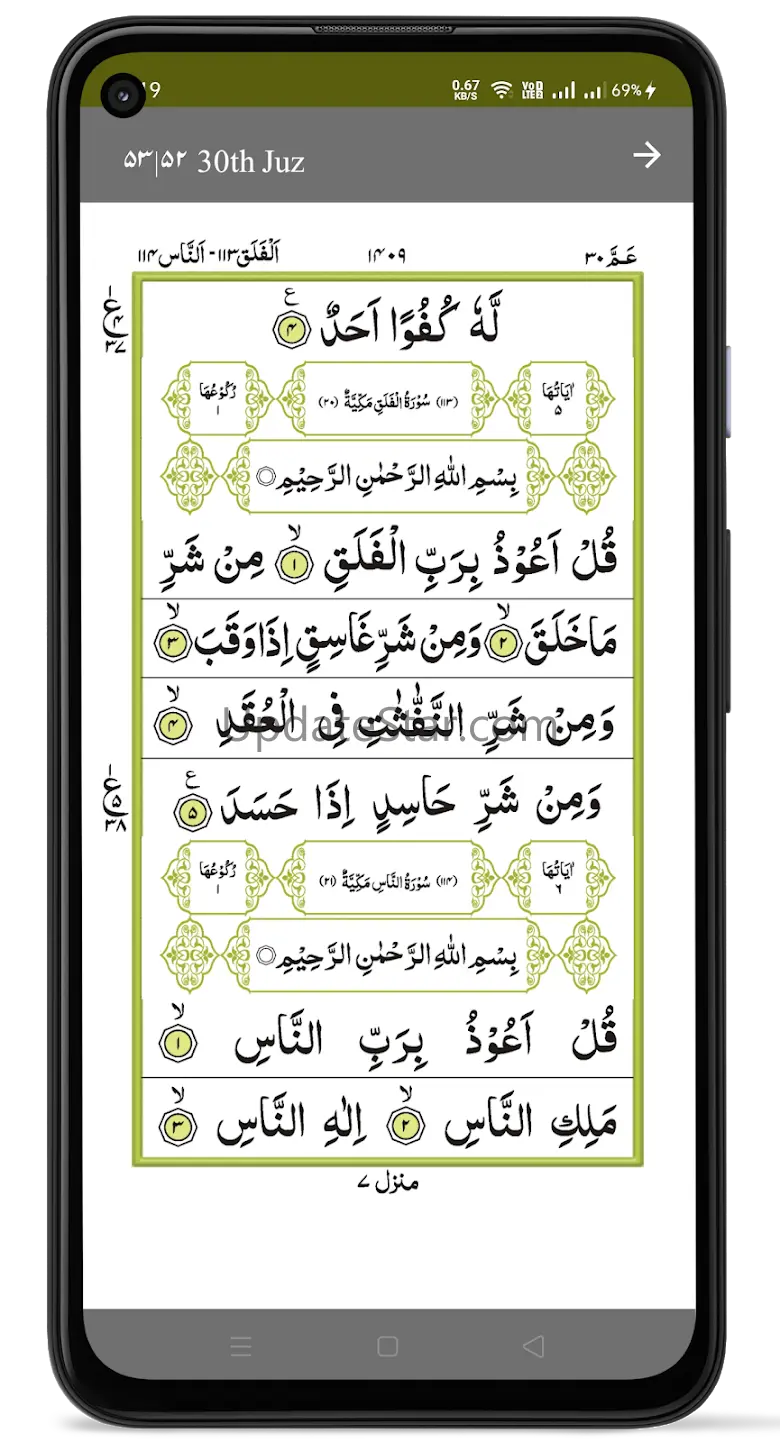 19 0.67 KB/S VoD LTE2 69%
۵۳|۵۲ 30th Juz
اَلْفَلَق۱۱۳ - اَلنَّاس۱۱۴ ۱۴۰۹ عَمَّ۳۰
لَّهٗ كُفُوًا اَحَدٌ ۴ ع
ع ۴ ۳۷
اٰيَاتُهَا ۵ (۱۱۳) سُوْرَةُ الْفَلَقِ مَكِّيَّةٌ (۲۰) رُكُوْعُهَا ۱
بِسْمِ اللّٰهِ الرَّحْمٰنِ الرَّحِيْمِ
قُلْ اَعُوْذُ بِرَبِّ الْفَلَقِ ۱ لا مِنْ شَرِّ
مَا خَلَقَ ۲ لا وَمِنْ شَرِّ غَاسِقٍ اِذَا وَقَبَ ۳ لا
وَمِنْ شَرِّ النَّفّٰثٰتِ فِى الْعُقَدِ ۴ لا
UpdateStar.com
وَمِنْ شَرِّ حَاسِدٍ اِذَا حَسَدَ ۵ ع
ع ۵ ۳۸
اٰيَاتُهَا ۶ (۱۱۴) سُوْرَةُ النَّاسِ مَكِّيَّةٌ (۲۱) رُكُوْعُهَا ۱
بِسْمِ اللّٰهِ الرَّحْمٰنِ الرَّحِيْمِ
قُلْ اَعُوْذُ بِرَبِّ النَّاسِ ۱ لا
مَلِكِ النَّاسِ ۲ لا اِلٰهِ النَّاسِ ۳ لا
منزل ۷